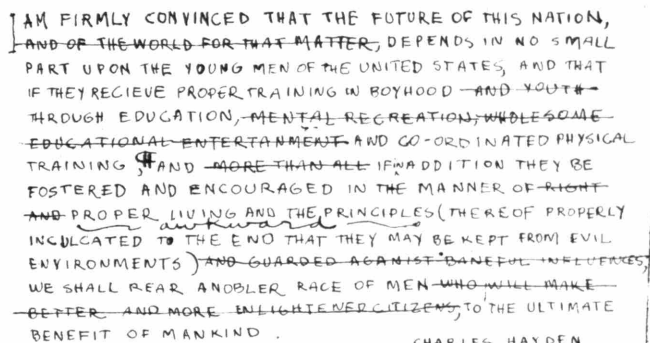 I AM FIRMLY CONVINCED THAT THE FUTURE OF THIS NATION,
AND OF THE WORLD FOR THAT MATTER, DEPENDS IN NO SMALL
PART UPON THE YOUNG MEN OF THE UNITED STATES, AND THAT
IF THEY RECIEVE PROPER TRAINING IN BOYHOOD AND YOUTH
THROUGH EDUCATION, MENTAL RECREATION, WHOLESOME
EDUCATIONAL ENTERTANMENT AND CO-ORDINATED PHYSICAL
TRAINING, AND MORE THAN ALL IF IN ADDITION THEY BE
FOSTERED AND ENCOURAGED IN THE MANNER OF RIGHT
AND PROPER LIVING AND THE PRINCIPLES (THEREOF PROPERLY
awkward
INCULCATED TO THE END THAT THEY MAY BE KEPT FROM EVIL
ENVIRONMENTS) AND GUARDED AGANIST BANEFUL INFLUENCES,
WE SHALL REAR A NOBLER RACE OF MEN WHO WILL MAKE
BETTER AND MORE ENLIGHTENER CITIZENS, TO THE ULTIMATE
BENEFIT OF MANKIND.
CHARLES HAYDEN